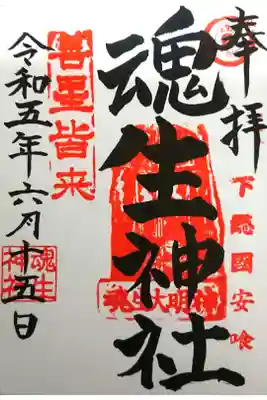 奉拝
下総國安喰
魂生神社
魂生大明神
善星皆来
令和五年六月十五日
魂生神社